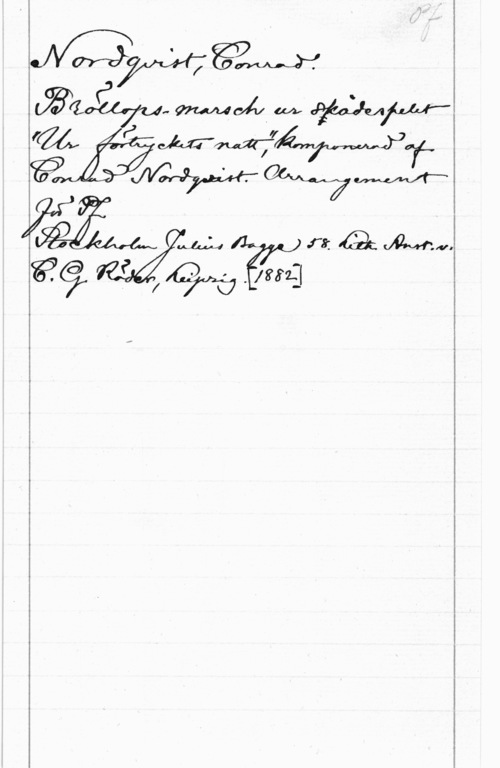 Pf
Nordqvist, Conrad.
Bröllops-marsch ur skådespelet
"Ur förtryckets natt", komponerad af
Conrad Nordqvist. Arrangement
för Pf.
Stockholm Julius Bagge) 5 s. Lith. Anst. v.
C. G. Röder, Leipzig. [1882]